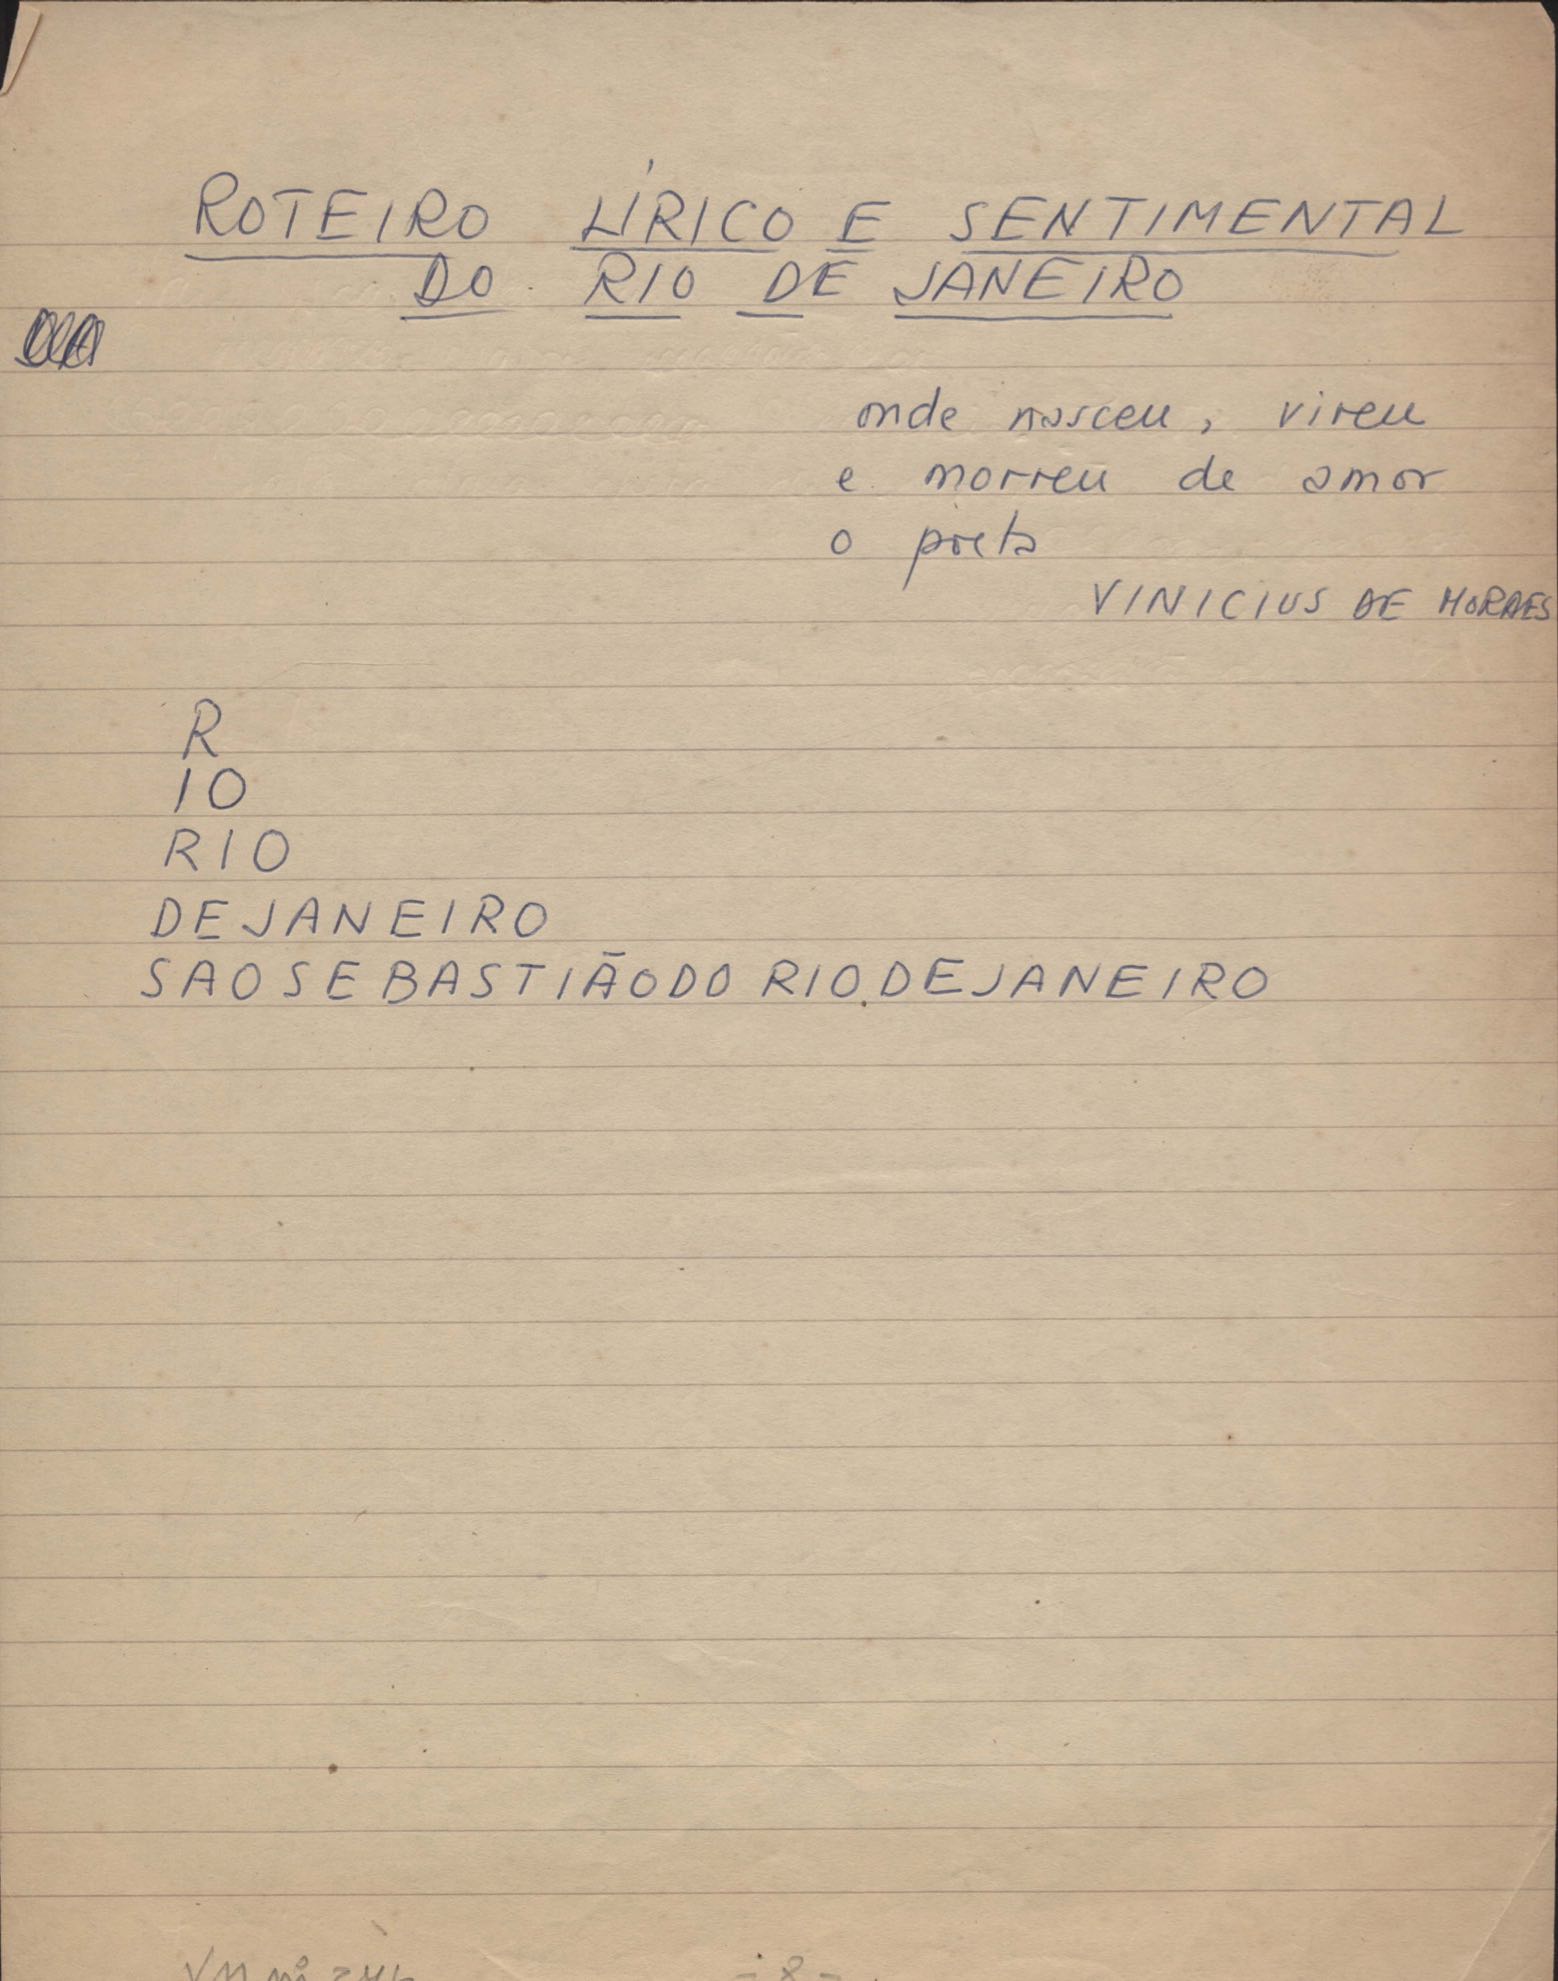 ROTEIRO LÍRICO E SENTIMENTAL
DO RIO DE JANEIRO
onde nasceu, viveu
e morreu de amor
o poeta
VINICIUS DE MORAES
R
IO
RIO
DEJANEIRO
SAOSEBASTIÃODO RIO DEJANEIRO